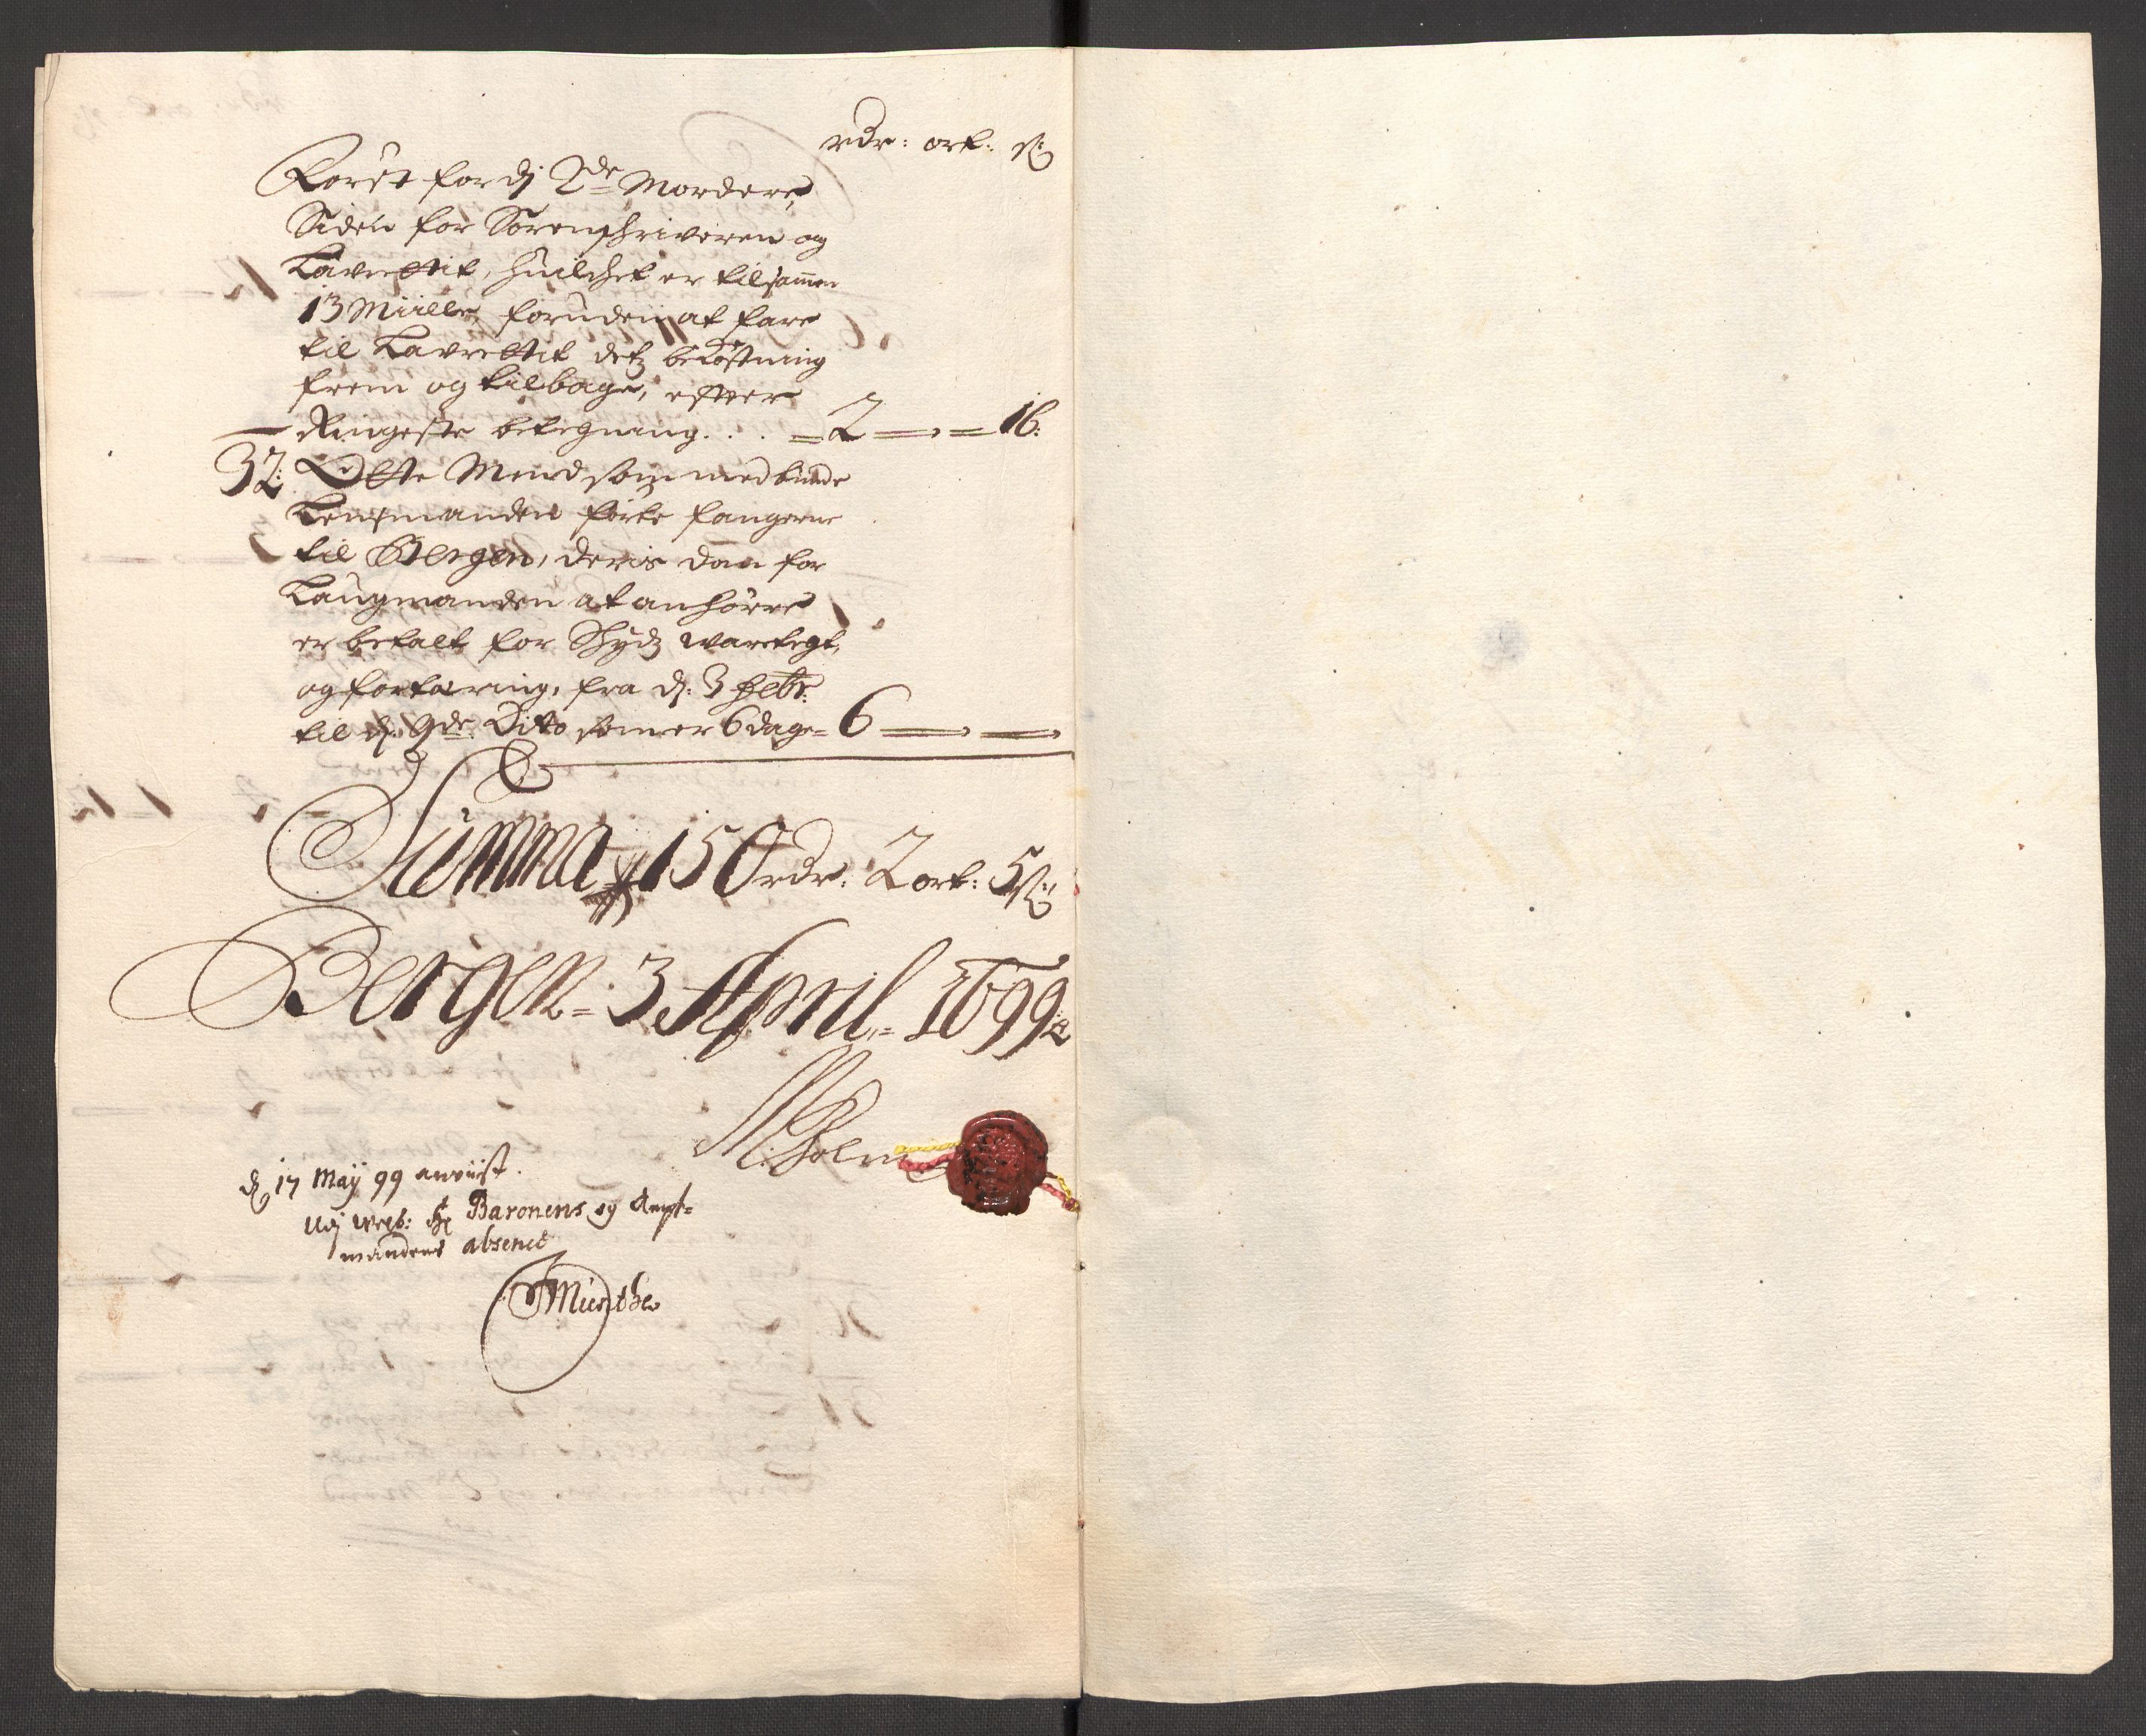 rdr: ort: s:
Först for dj 2de Mordere,
Siden for Sorenschriveren og
Lavrettit, huilchet er tilsamen
13 Miille, foruden at fare
til Lavrettit detz bekostning
frem og tilbage, efter
Ringeste betegning . . . = 2 — = 16:
32: Otte Mend som med bünde
Lensmanden förte fangerne
til Bergen, deris dom for
Laugmanden at anhörre
er betalt for Schydz waretegt,
og fortæring, fra d: 3 Febr:
til d: 9de Dito som er 6 dage = 6 — —
Summa 150 rdr: 2 ort: 5 s:
Bergen = 3 April = 1699
Holm
d 17 Maij 99 anviist.
Udj welb: Hr Baronens og Ampt=
mandens absence
Munthe